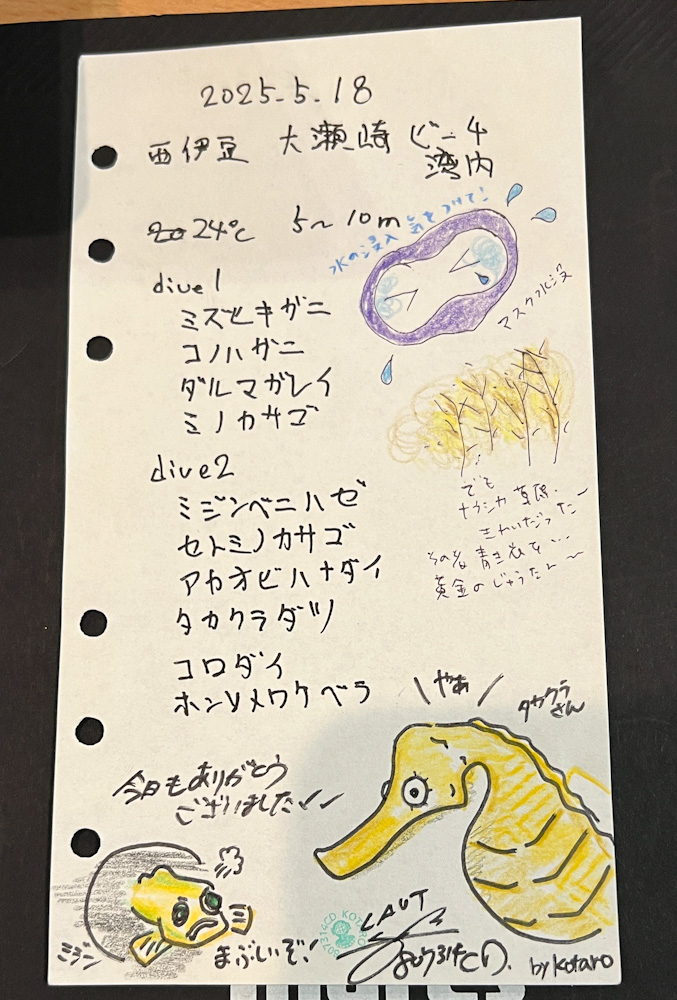 2025.5.18
西伊豆 大瀬崎 ビーチ
湾内
24℃ 5~10m
水の浸入 気をつけて!
マスク水没
dive1
ミズヒキガニ
コノハガニ
ダルマガレイ
ミノカサゴ
でも
ナウシカ草原、
きれいだったー
その者青き衣を…
黄金のじゅうたんー
dive2
ミジンベニハゼ
セトミノカサゴ
アカオビハナダイ
タカクラダツ
コロダイ
ホンソメワケベラ
\やあ/
タカクラさん
今日もありがとう
ございましたー
ミジン
まぶしいぞ!
LAUT
by Kotaro